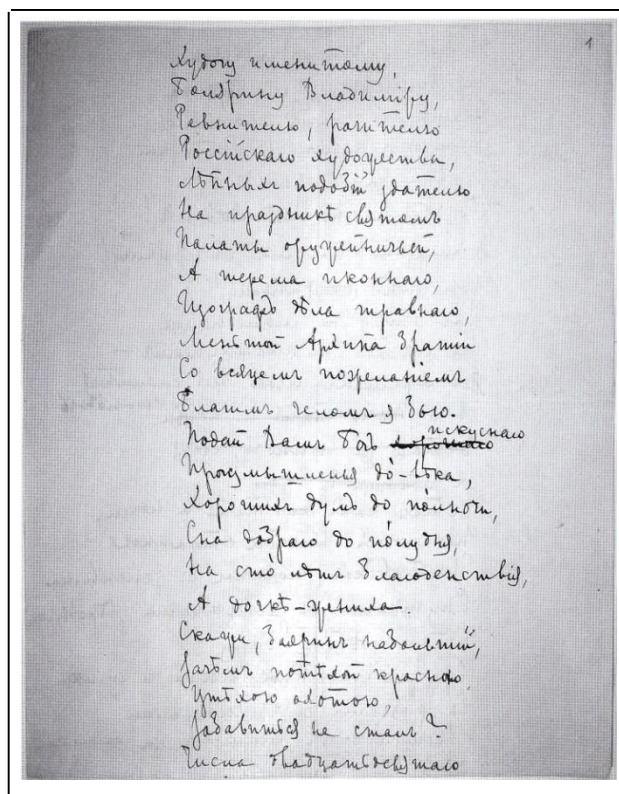 1
Худогу именитому,
Болярину Владимiру,
Ревнителю, рачителю
Россiйскаго художества,
Лѣпныхъ подобiй здателю
На праздникѣ святомъ
Палаты оружейничьей,
А терема иконнаго,
Изографъ дѣла травнаго,
Меньшой Аряпка братiи
Со всяцемъ пожеланiемъ
Благимъ челомъ я бью.
Подай Вамъ Богъ искуснаго
Промышленья до-вѣка,
Хорошихъ думъ до полночи,
Сна добраго до полудня,
На сто лѣтъ благоденствiя,
А дочкѣ-жениха.
Скажи, бояринъ набольшiй,
Зачѣмъ потѣхой красною,
Утѣхою охотою,
Забавиться не сталъ?
Числа двадцатьдевятаго